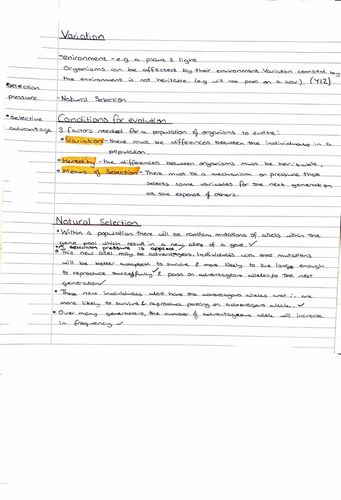 Variation
-enironment - e.g. a plant & light
Organisms can be affected by their environment. Variation caused by
the environment is not heritable (e.g. will not pass on a scar). (Y12)
*Selection
pressure
-Natural Selection
*Selective
advantage
Conditions for evolution
3 factors needed for a population of organisms to evolve:
• Variation - there must be differences between the individuals in a
population.
• Heredity - the differences between organisms must be heritable.
• Means of Selection - There must be a mechanism or pressure that
selects some variables for the next generation
at the expense of others.
Natural Selection
• Within a population there will be random mutations of alleles within the
gene pool which result in a new allele of a gene. ✓
• A selection pressure is applied.
• This new allel may be advantageous. Individuals with mutations
will be better adapted to survive & more likely to live longer enough
to reproduce successfully ✓ & pass on advantageous alleles to the next
generation ✓
• These new individuals also have the advantageous alleles and ∴ are
more likely to survive & reproduce passing on advantageous allele. ✓
• Over many generations, the number of advantageous allele will increase
in frequency ✓